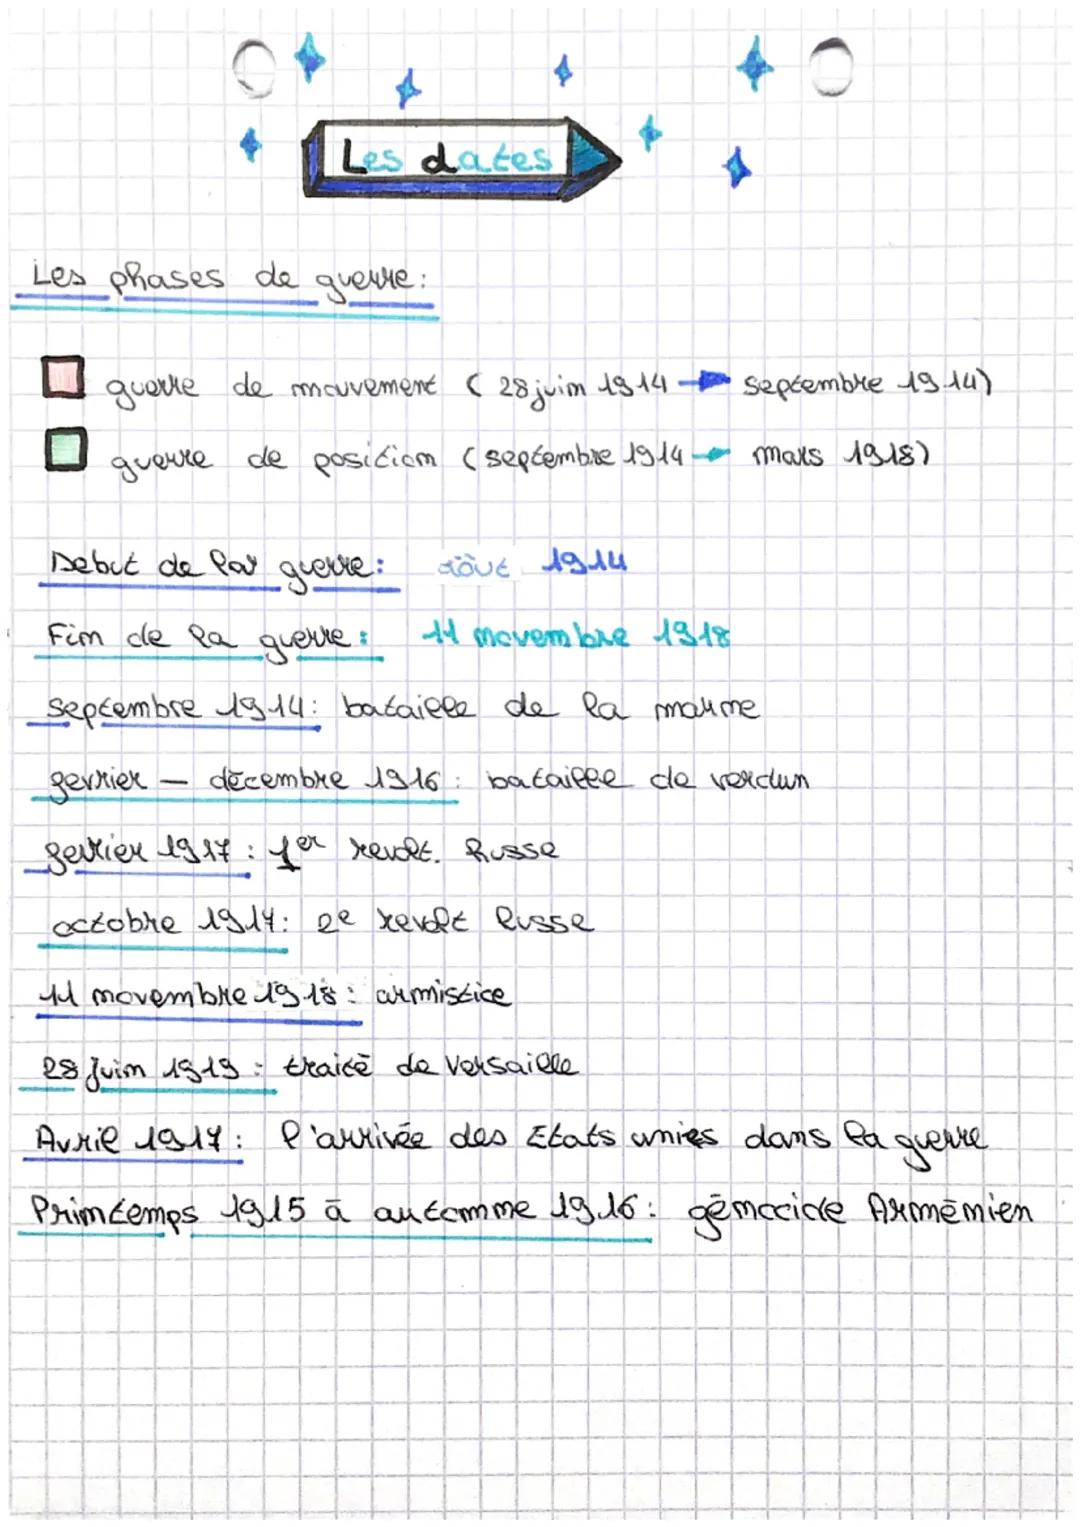 Les dates
Les phases de guerre:
guerre de mouvement ( 28 juin 1914 → septembre 1914)
guerre de position (septembre 1914 → mars 1918)
Debut de la guerre: août 1914
Fin de la guerre: 11 novembre 1918
septembre 1914: bataille de la marne
fevrier - décembre 1916: bataille de verdun
fevrier 1917: 1er revolt. Russe
octobre 1917: 2e revolt Russe
11 novembre 1918: armistice
28 juin 1919: traité de Versaille
Avril 1917: l'arrivée des Etats unies dans la guerre
Printemps 1915 à automne 1916: génocide Arménien